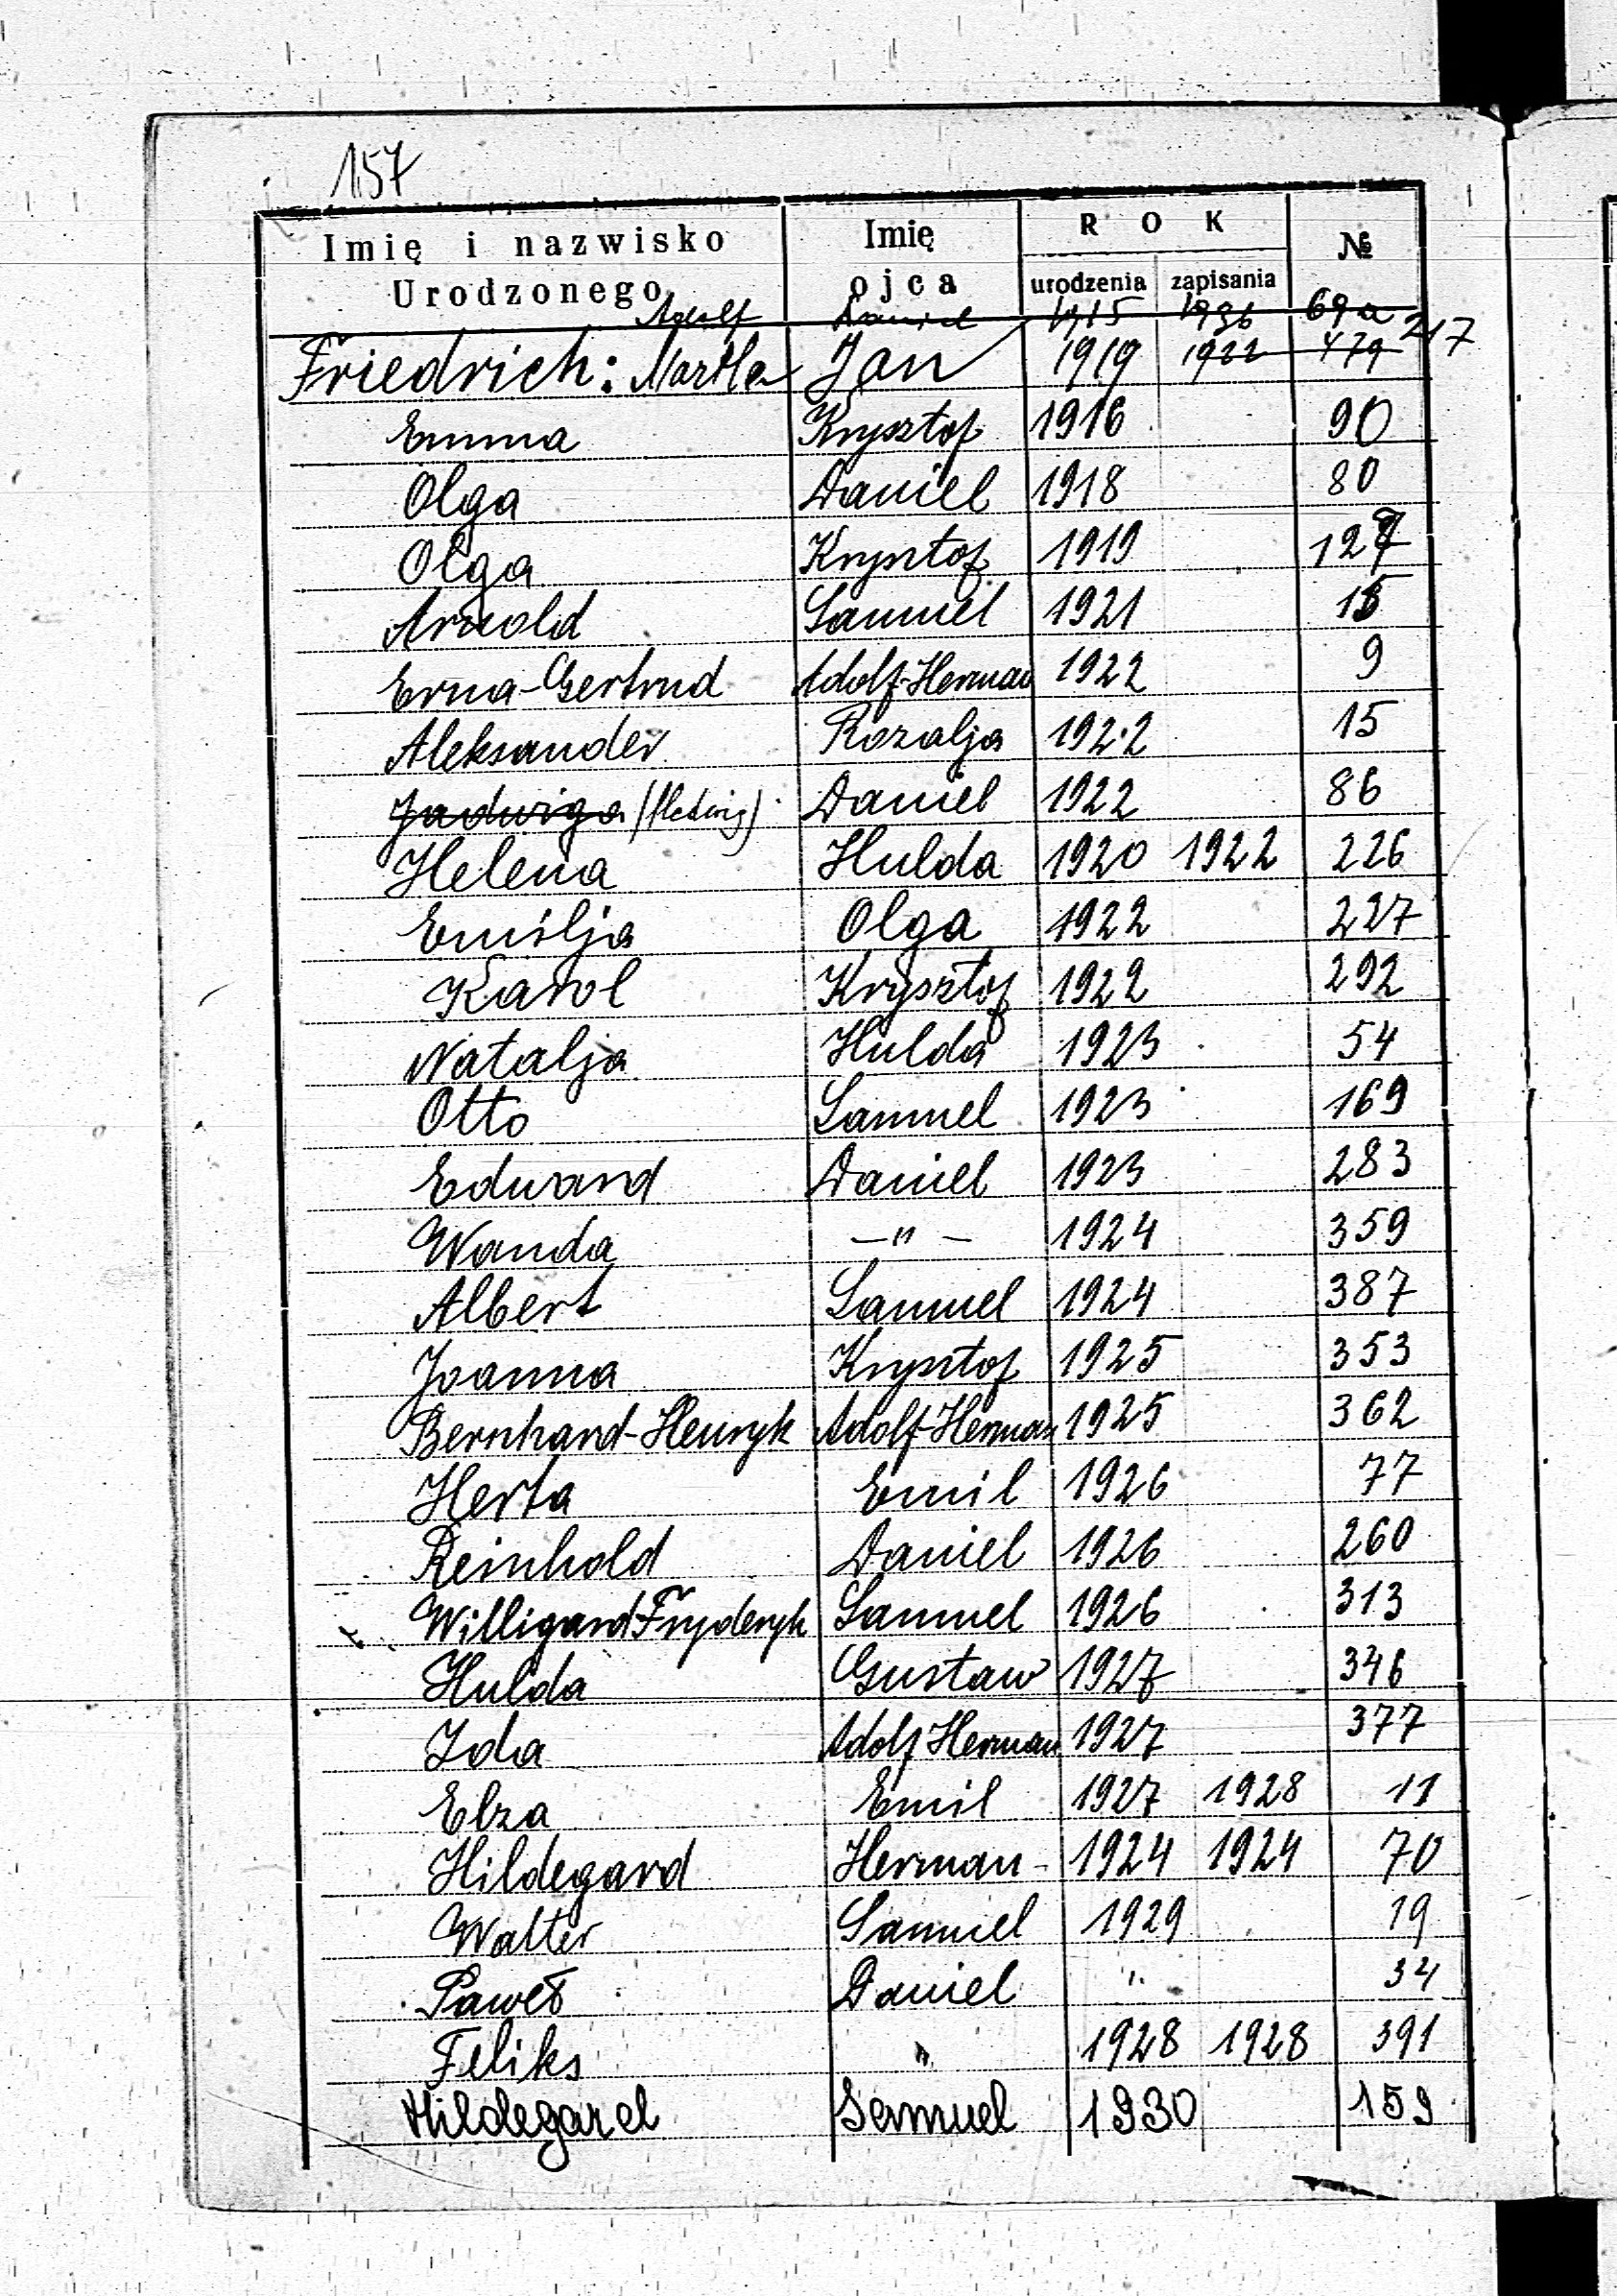 157
Imię i nazwisko Urodzonego Imię ojca ROK urodzenia zapisania №
Adolf Daniel 1915 1936 69a
Friedrich: Martha Jan 1919 1922 479 217
Emma Krysztof 1916 90
Olga Daniel 1918 80
Olga Krysztof 1919 127
Arnold Samuel 1921 15
Erna-Gertrud Adolf-Herman 1922 9
Aleksander Rozalja 1922 15
Jadwiga (Hedwig) Daniel 1922 86
Helena Hulda 1920 1922 226
Emilja Olga 1922 227
Karol Krysztof 1922 292
Natalja Hulda 1923 54
Otto Samuel 1923 169
Edward Daniel 1923 283
Wanda —"— 1924 359
Albert Samuel 1924 387
Joanna Krysztof 1925 353
Bernhard-Henryk Adolf-Herman 1925 362
Herta Emil 1926 77
Reinhold Daniel 1926 260
Willigard-Fryderyk Samuel 1926 313
Hulda Gustaw 1927 346
Ida Adolf Herman 1927 377
Elza Emil 1927 1928 11
Hildegard Herman- 1924 1924 70
Walter Samuel 1929 19
Paweł Daniel " 34
Feliks " 1928 1928 391
Hildegard Samuel 1930 159